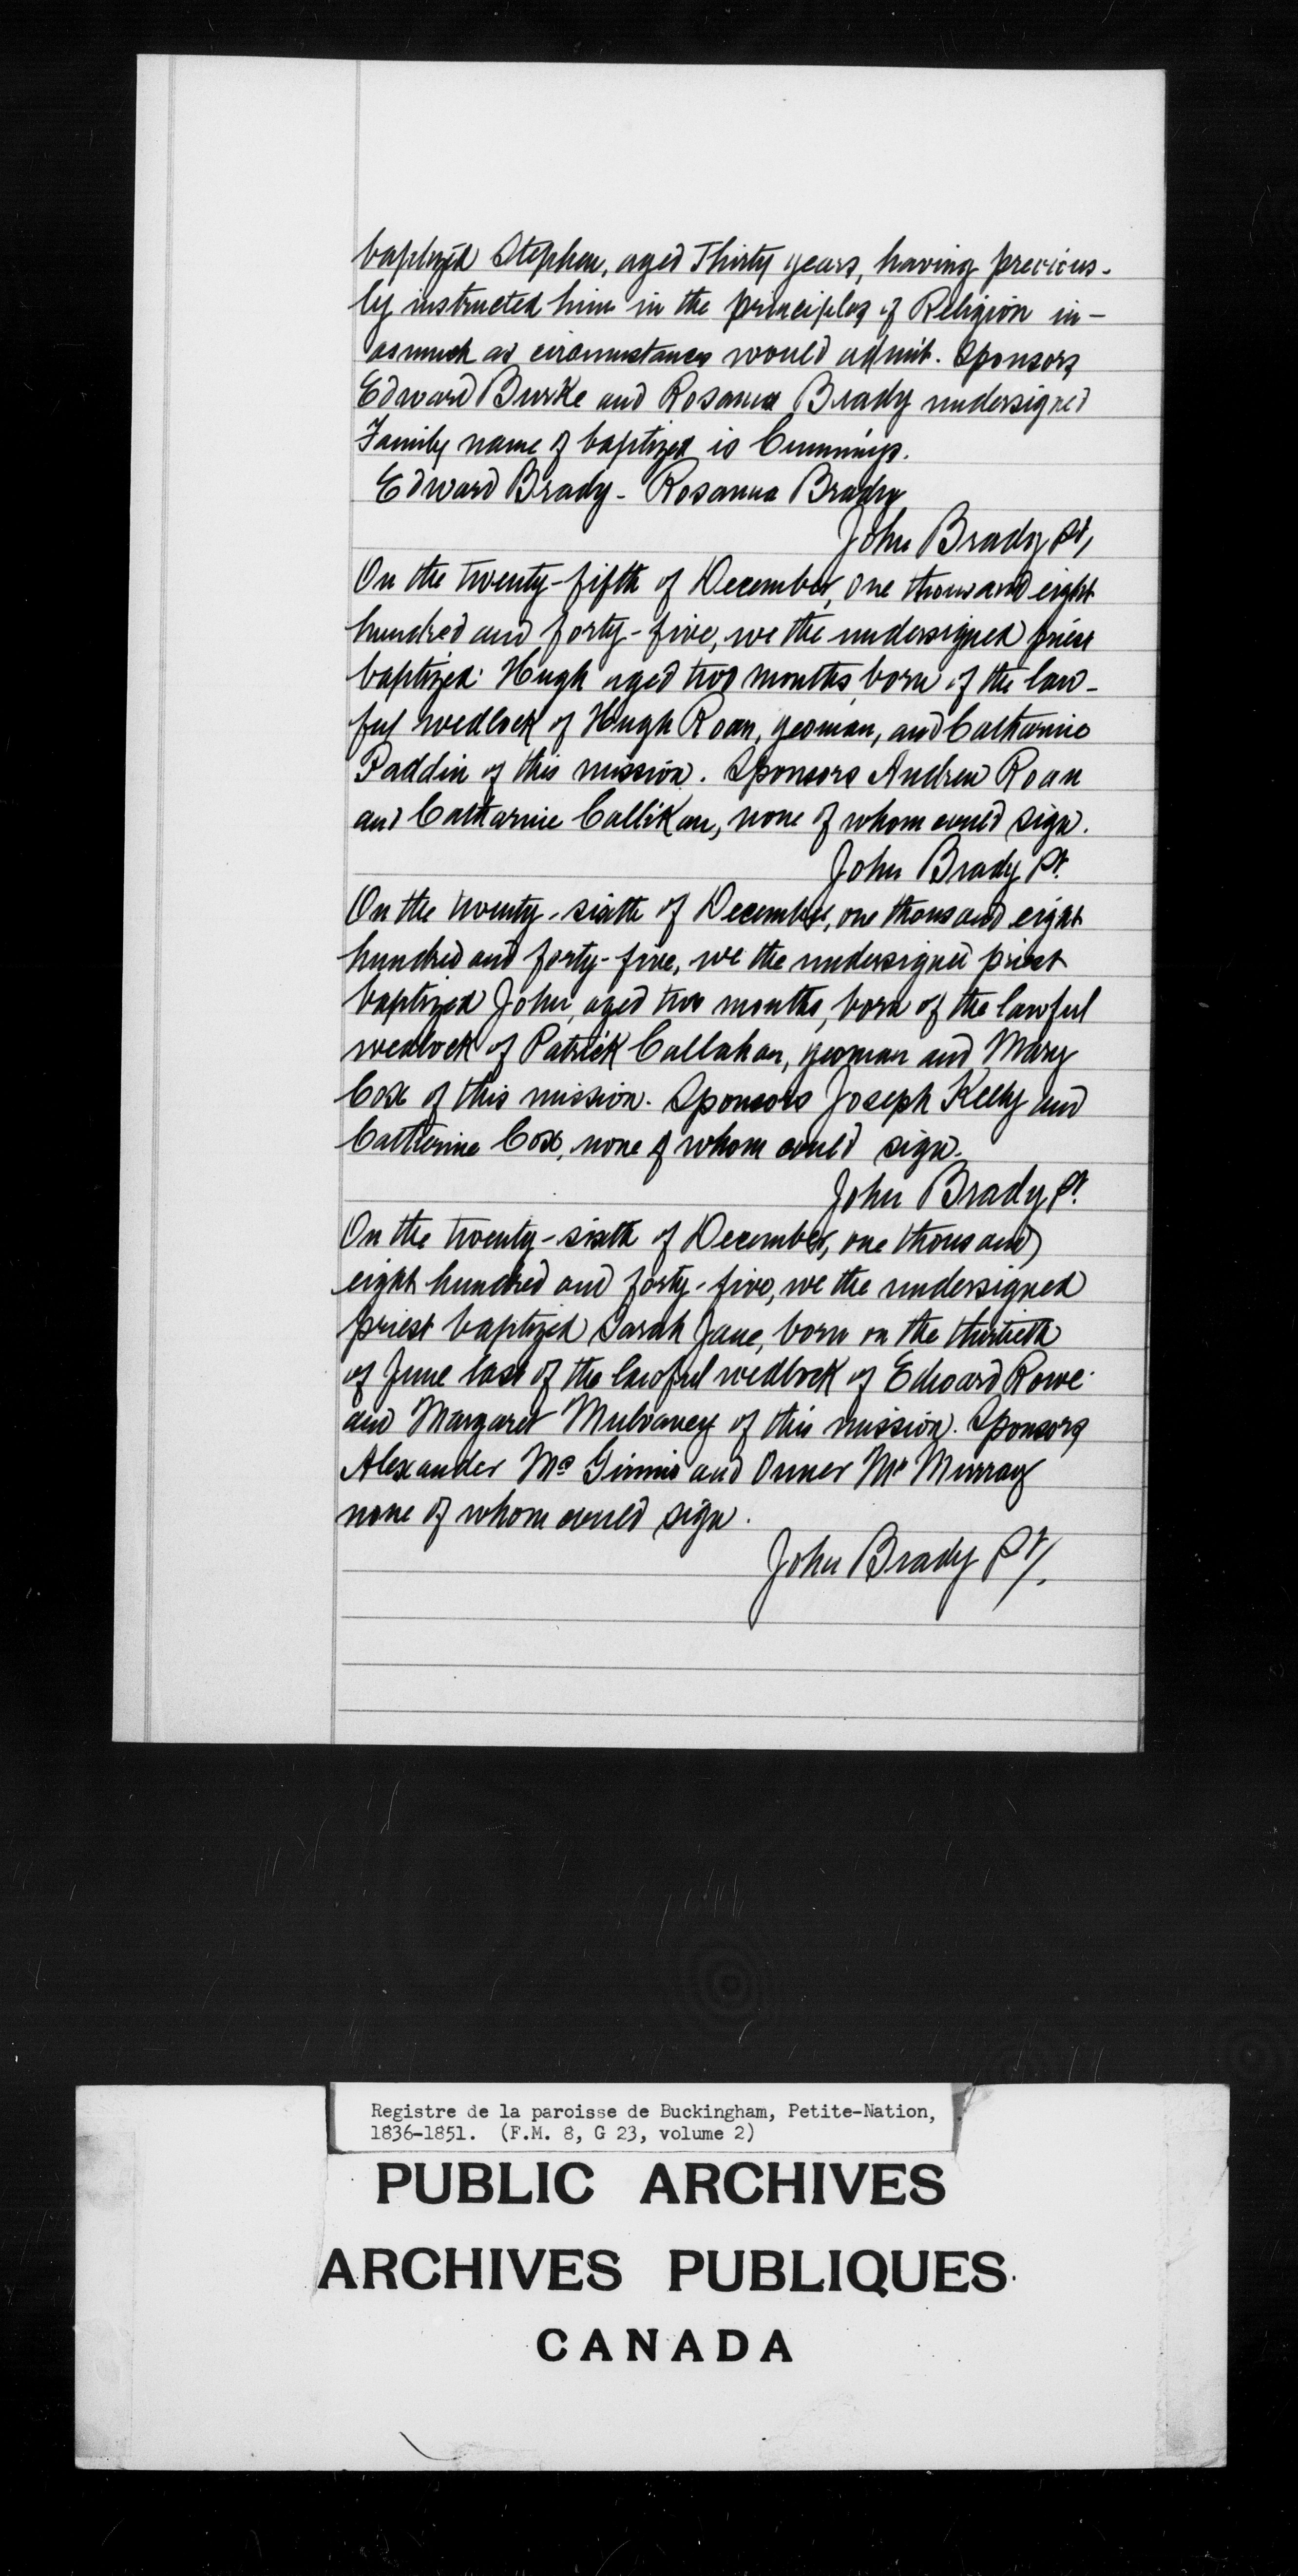 baptized Stephen, aged Thirty years, having previous-
ly instructed him in the principles of Religion in-
asmuch as circumstances would admit. Sponsors
Edward Burke and Rosanna Brady undersigned
Family name of baptized is Cummings.
Edward Brady - Rosanna Brady
John Brady Pt,
On the twenty-fifth of December, one thousand eight
hundred and forty-five, we the undersigned priest
baptized Hugh aged two months, born of the law-
ful wedlock of Hugh Roan, yeoman, and Catharine
Paddin of this mission. Sponsors Andrew Roan
and Catharine Callikan, none of whom could sign.
John Brady Pt.
On the twenty-sixth of December, one thousand eight
hundred and forty-five, we the undersigned priest
baptized John, aged two months, born of the lawful
wedlock of Patrick Callahan, yeoman and Mary
Cox of this mission. Sponsors Joseph Kelly and
Catherine Cox, none of whom could sign.
John Brady Pt.
On the twenty-sixth of December, one thousand
eight hundred and forty-five, we the undersigned
priest baptized Sarah Jane, born on the thirtieth
of June last of the lawful wedlock of Edward Rowe
and Margaret Mulvaney of this mission. Sponsors
Alexander Mc Ginnis and Onner Mc Murray
none of whom could sign.
John Brady Pt/.
Registre de la paroisse de Buckingham, Petite-Nation,
1836-1851. (F.M. 8, G 23, volume 2)
PUBLIC ARCHIVES
ARCHIVES PUBLIQUES
CANADA